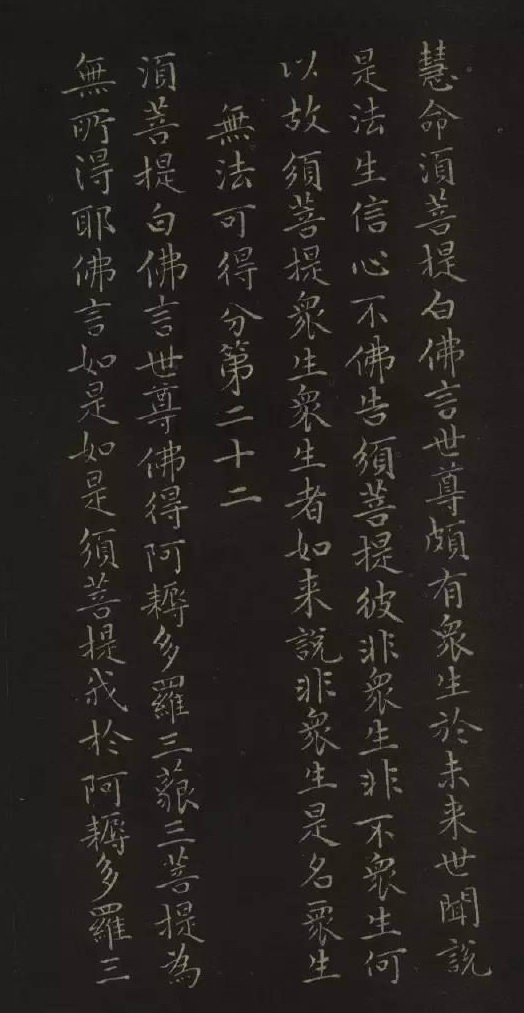 慧命須菩提白佛言世尊頗有眾生於未来世聞說
是法生信心不佛告須菩提彼非眾生非不眾生何
以故須菩提眾生眾生者如来說非眾生是名眾生
無法可得分第二十二
須菩提白佛言世尊佛得阿耨多羅三藐三菩提為
無所得耶佛言如是如是須菩提我於阿耨多羅三